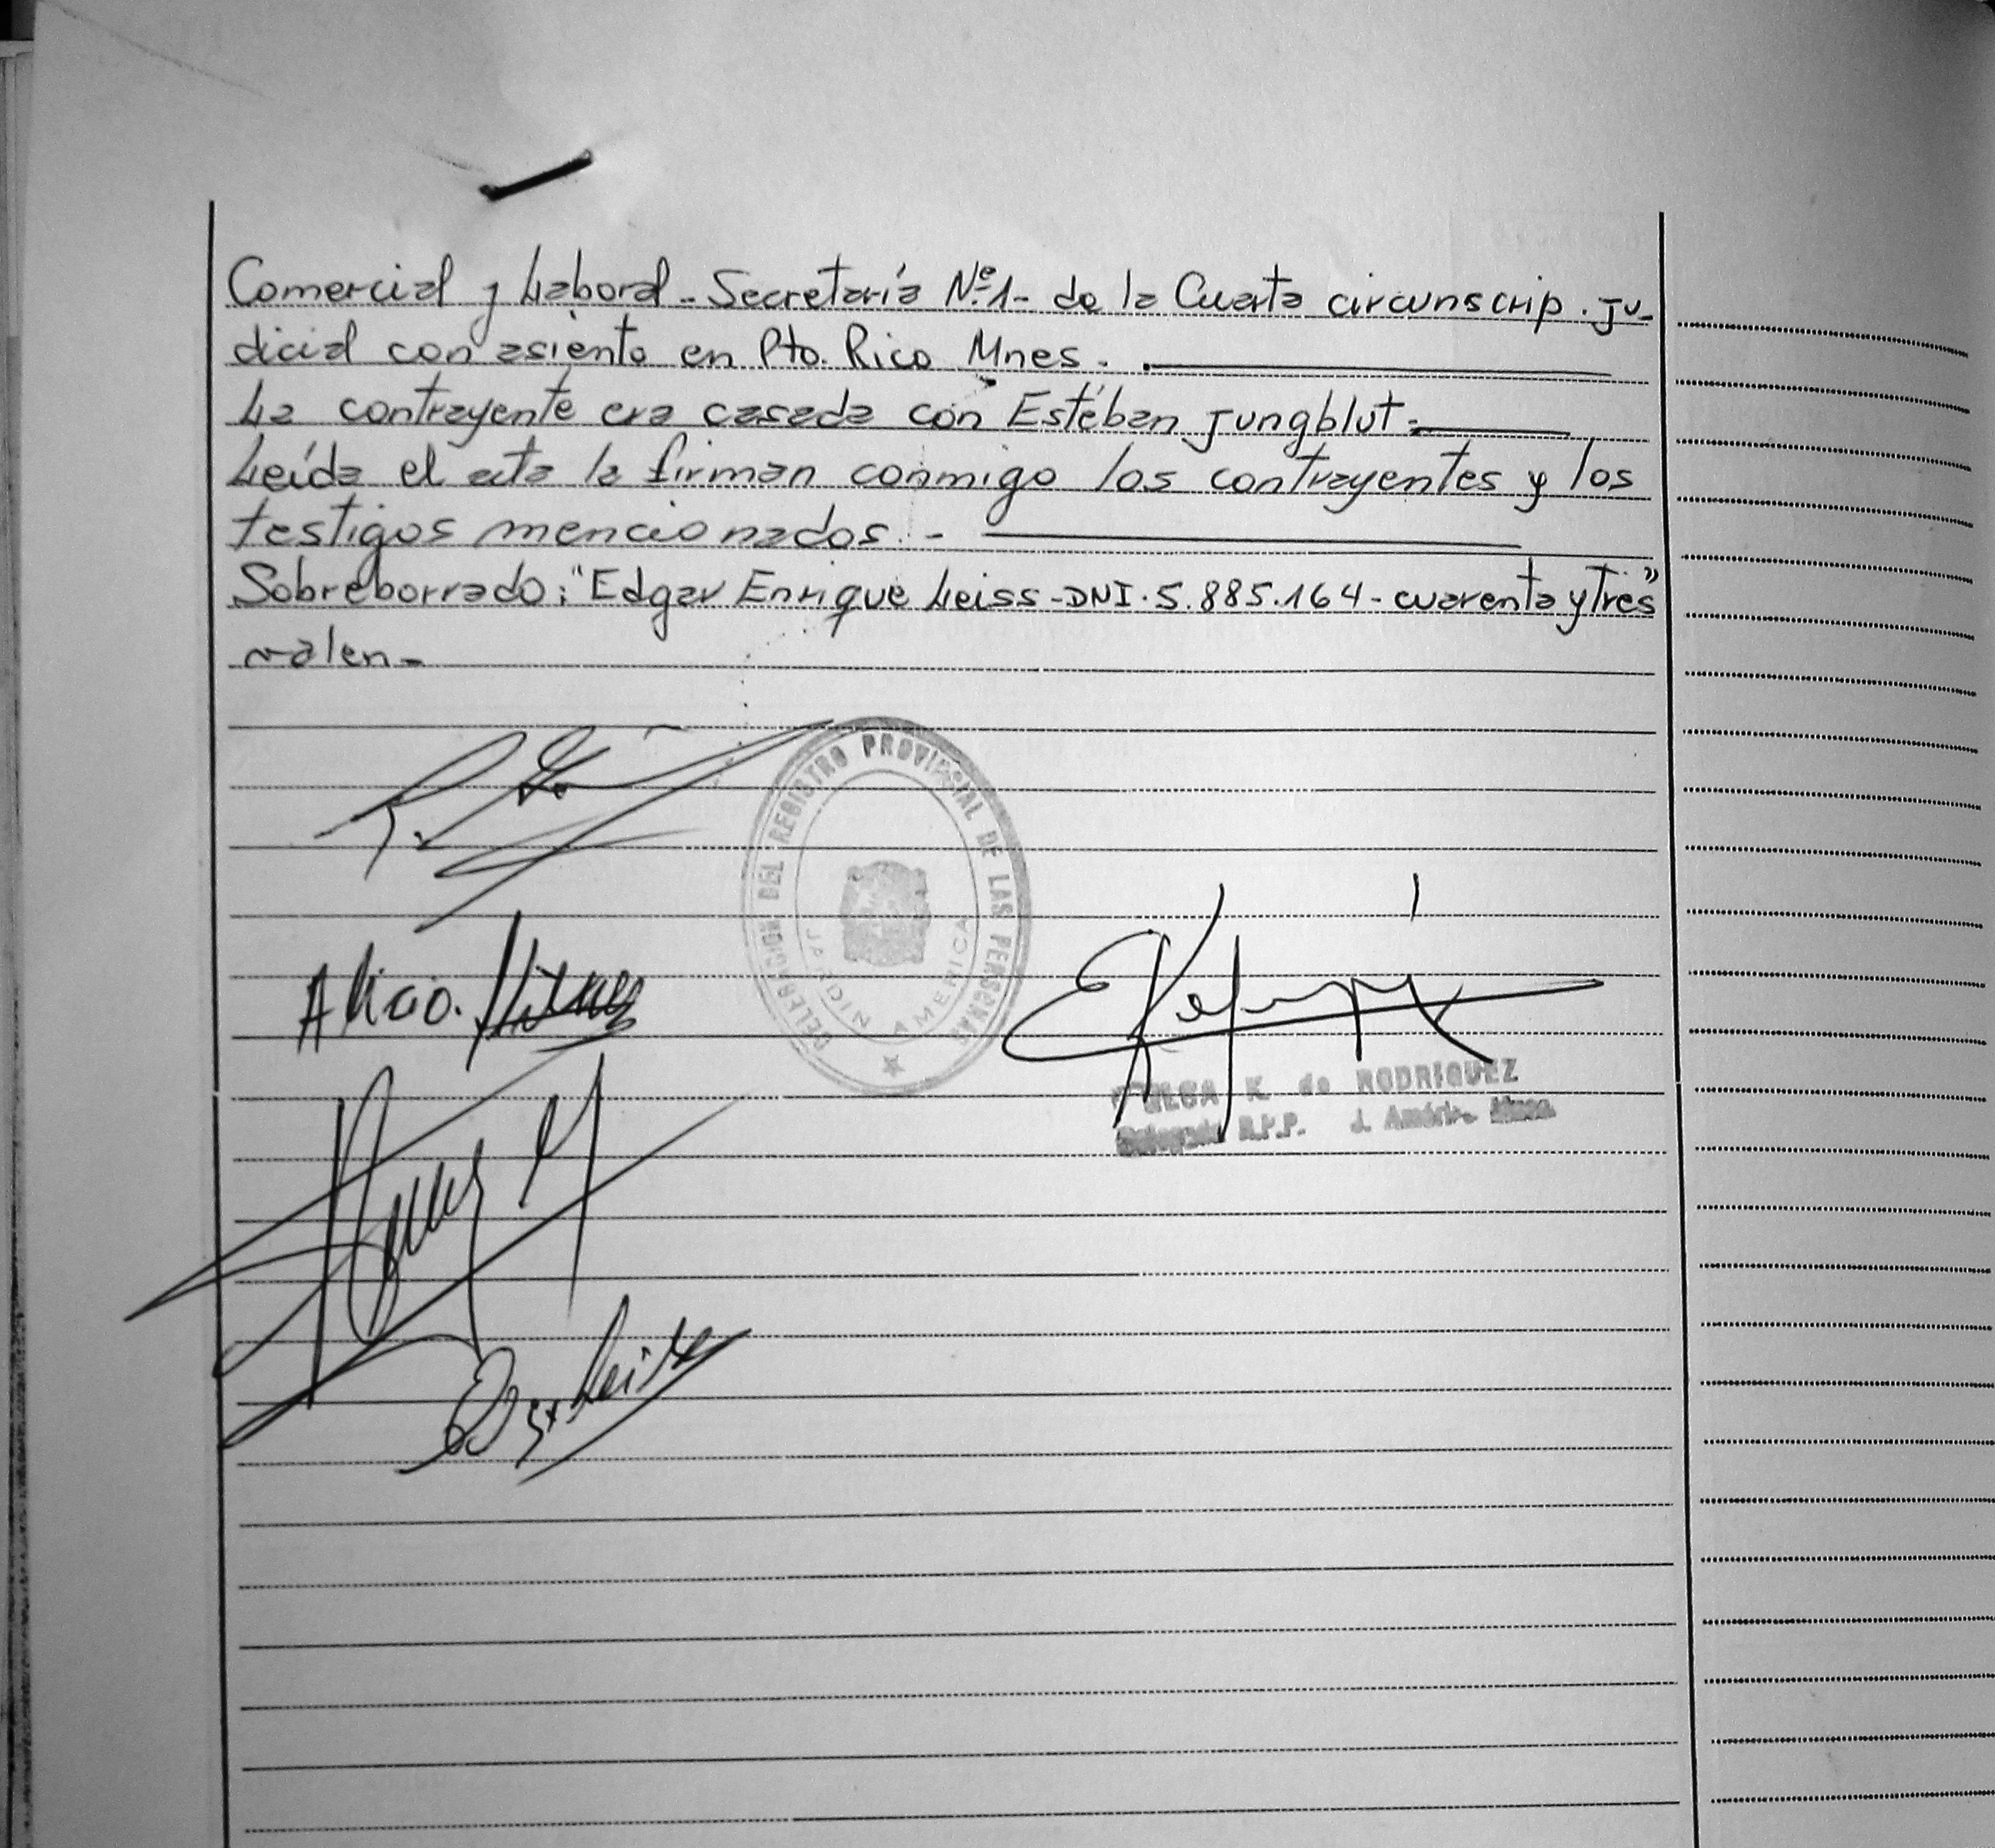 Comercial y Laboral - Secretaría Nº 1 - de la Cuarta circunscrip. ju-
dicial con asiento en Pto. Rico Mnes. -
La contrayente era casada con Estéban Jungblut -
Leída el acta la firman conmigo los contrayentes y los
testigos mencionados. -
Sobreborrado: "Edgar Enrique Leiss - DNI. 5.885.164 - cuarenta y tres"
valen -
DELEGACION DEL REGISTRO PROVINCIAL DE LAS PERSONAS
JARDIN AMERICA
OLGA K. de RODRIGUEZ
Delegada R.P.P. J. América